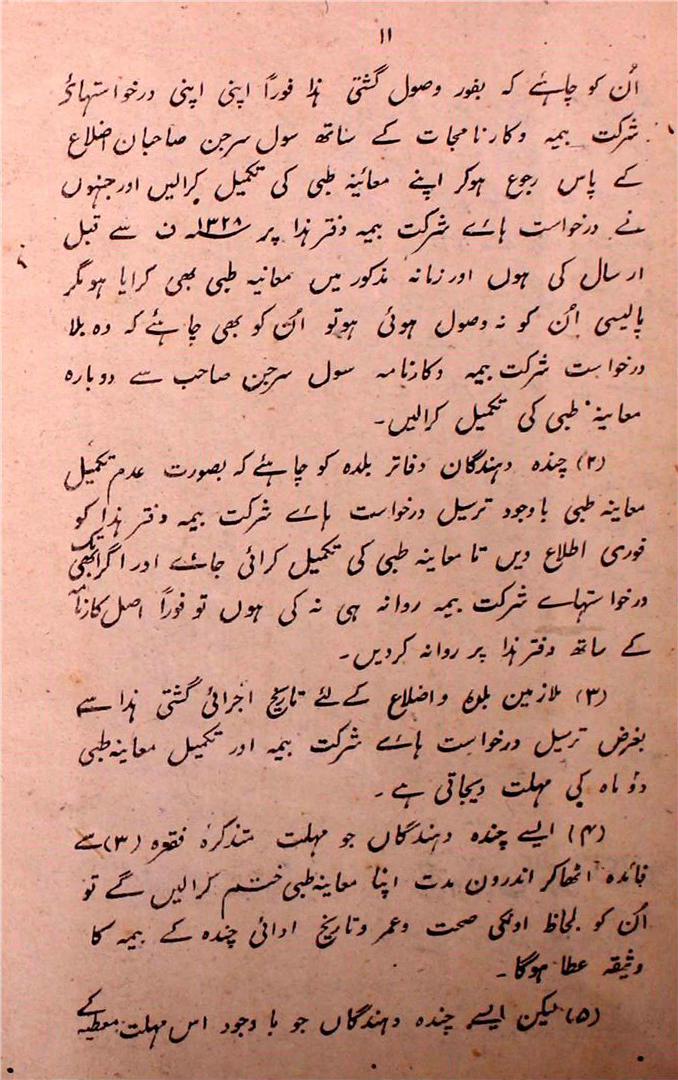 ۱۱
اُن کو چاہئے کہ بفور وصول گشتی ہذا فوراً اپنی اپنی درخواستہائ
شرکت بیمہ وکارنامجات کے ساتھ سول سرجن صاحبان اضلاع
کے پاس رجوع ہوکر اپنے معائینہ طبی کی تکمیل کرالیں اورجنہوں
نے درخواست ہاے شرکت بیمہ دفتر ہذا پر ۱۳۲۸ ف سے قبل
ارسال کی ہوں اور زمانہ مذکور میں معاینہ طبی بھی کرایا ہو مگر
پالیسی اُن کو نہ وصول ہوئی ہو تو اُن کو بھی چاہئے کہ وہ بلا
درخواست شرکت بیمہ وکارنامہ سول سرجن صاحب سے دوبارہ
معاینہ طبی کی تکمیل کرالیں۔
(۲) چندہ دہندگان دفاتر بلدہ کو چاہئے کہ بصورت عدم تکمیل
معاینہ طبی باوجود ترسیل درخواست ہاے شرکت بیمہ دفتر ہذا کو
فوری اطلاع دیں تا معاینہ طبی کی تکمیل کرائی جاے اور اگر ابھی تک
درخواستہاے شرکت بیمہ روانہ ہی نہ کی ہوں تو فوراً اصل کارنامہ
کے ساتھ دفتر ہذا پر روانہ کردیں۔
(۳) ملازمین بلدہ و اضلاع کے لئے تاریخ اجرائی گشتی ہذا سے
بغرض ترسیل درخواست ہاے شرکت بیمہ اور تکمیل معاینہ طبی
دو ماہ کی مہلت دیجاتی ہے۔
(۴) ایسے چندہ دہندگاں جو مہلت متذکرۂ فقرہ (۳) سے
فائدہ اٹھاکر اندرون مدت اپنا معاینہ طبی ختم کرالیں گے تو
اُن کو بلحاظ اونکی صحت وعمر وتاریخ ادائی چندہ کے بیمہ کا
وثیقہ عطا ہوگا۔
(۵) لیکن ایسے چندہ دہندگاں جو باوجود اس مہلت معطیہ کے